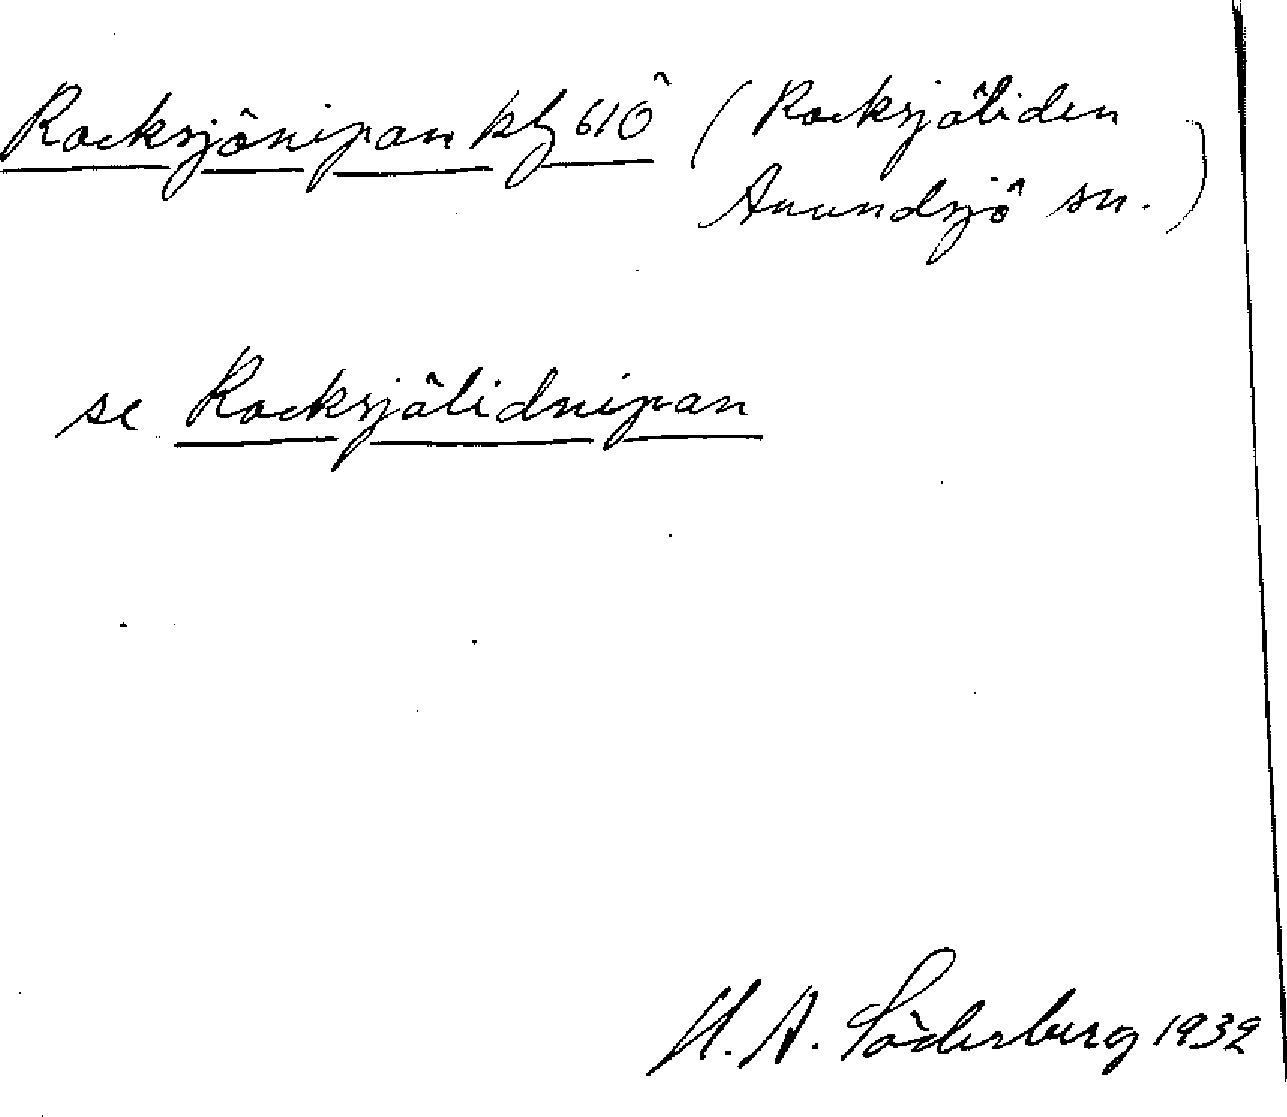 Racksjönipan kbf 610 (Racksjöliden
Anundsjö sn.)
se Racksjölidnipan
H. A. Söderberg 1932